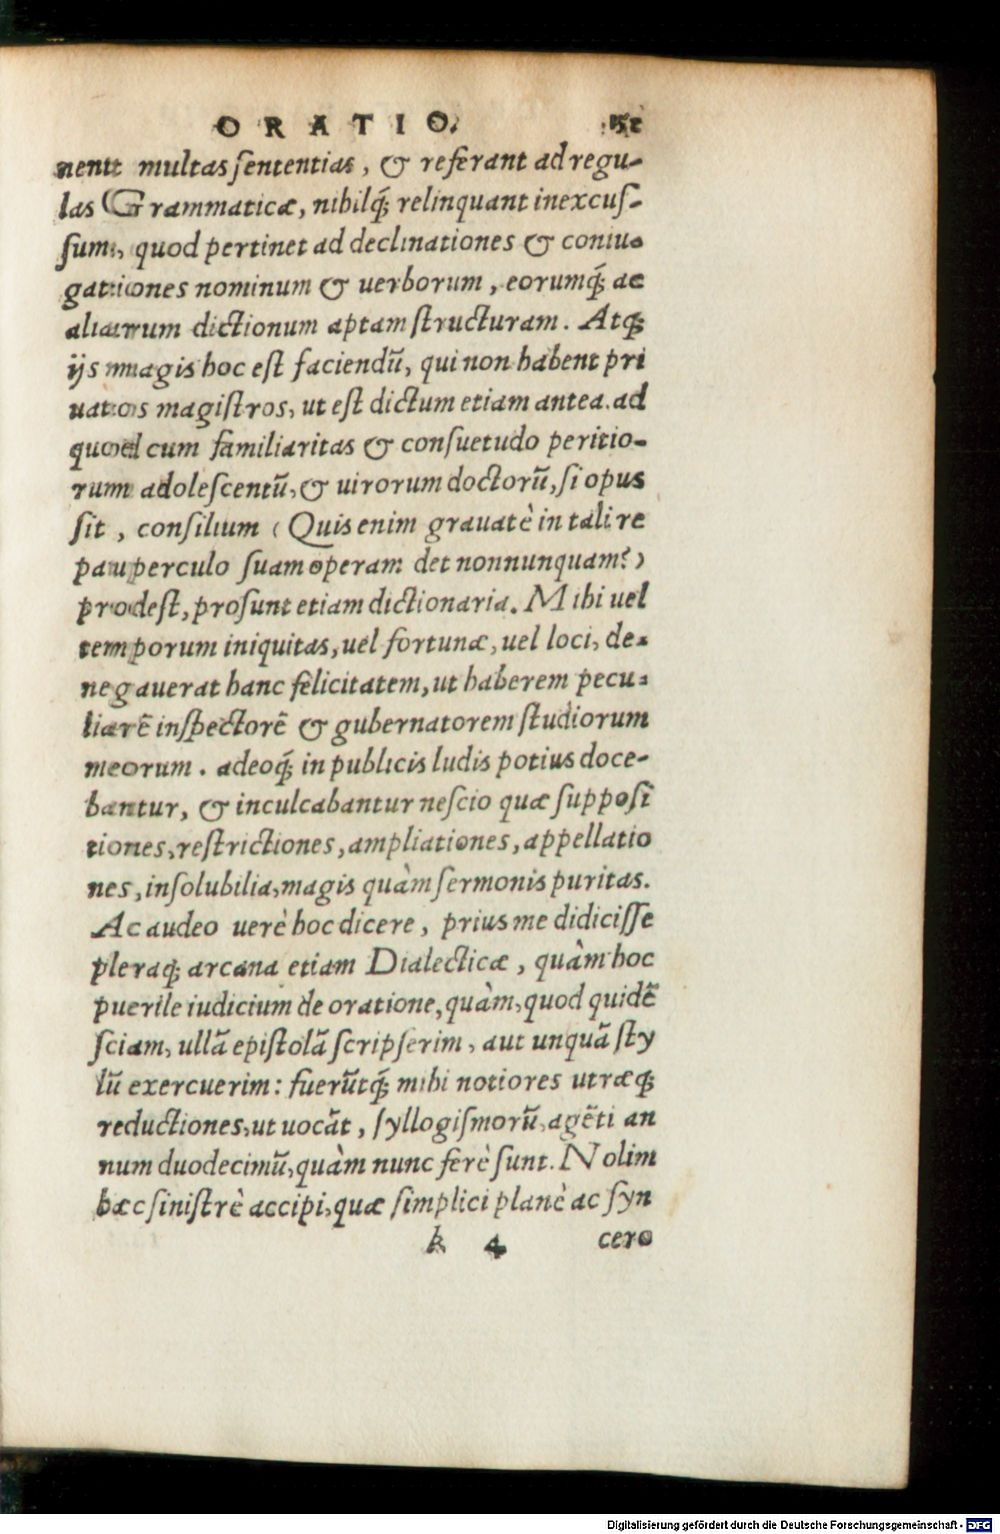 ORATIO.
nent multas sententias, & referant ad regu-
las Grammaticæ, nihilq́; relinquant inexcus-
sum, quod pertinet ad declinationes & coniu-
gationes nominum & uerborum, eorumq́; ac
aliarum dictionum aptam structuram. Atq;
ijs magis hoc est faciendũ, qui non habent pri
uatos magistros, ut est dictum etiam antea. ad
quod cum familiaritas & consuetudo peritio-
rum adolescentũ, & uirorum doctorũ, si opus
sit, consilium (Quis enim grauatè in tali re
pauperculo suam operam det nonnunquam?)
prodest, prosunt etiam dictionaria. Mihi uel
temporum iniquitas, uel fortunæ, uel loci, de-
negauerat hanc felicitatem, ut haberem pecu-
liarẽ inspectorẽ & gubernatorem studiorum
meorum. adeoq́; in publicis ludis potius doce-
bantur, & inculcabantur nescio quæ supposi
tiones, restrictiones, ampliationes, appellatio
nes, insolubilia, magis quàm sermonis puritas.
Ac audeo uerè hoc dicere, prius me didicisse
pleraq; arcana etiam Dialecticæ, quàm hoc
puerile iudicium de oratione, quàm, quod quidẽ
sciam, ullã epistolã scripserim, aut unquã sty
lũ exercuerim: fuerũtq́; mihi notiores utræq;
reductiones, ut uocãt, syllogismorũ, agẽti an
num duodecimũ, quàm nunc ferè sunt. Nolim
hæc sinistrè accipi, quæ simplici planè ac syn
k 4 cero
Digitalisierung gefördert durch die Deutsche Forschungsgemeinschaft - DFG